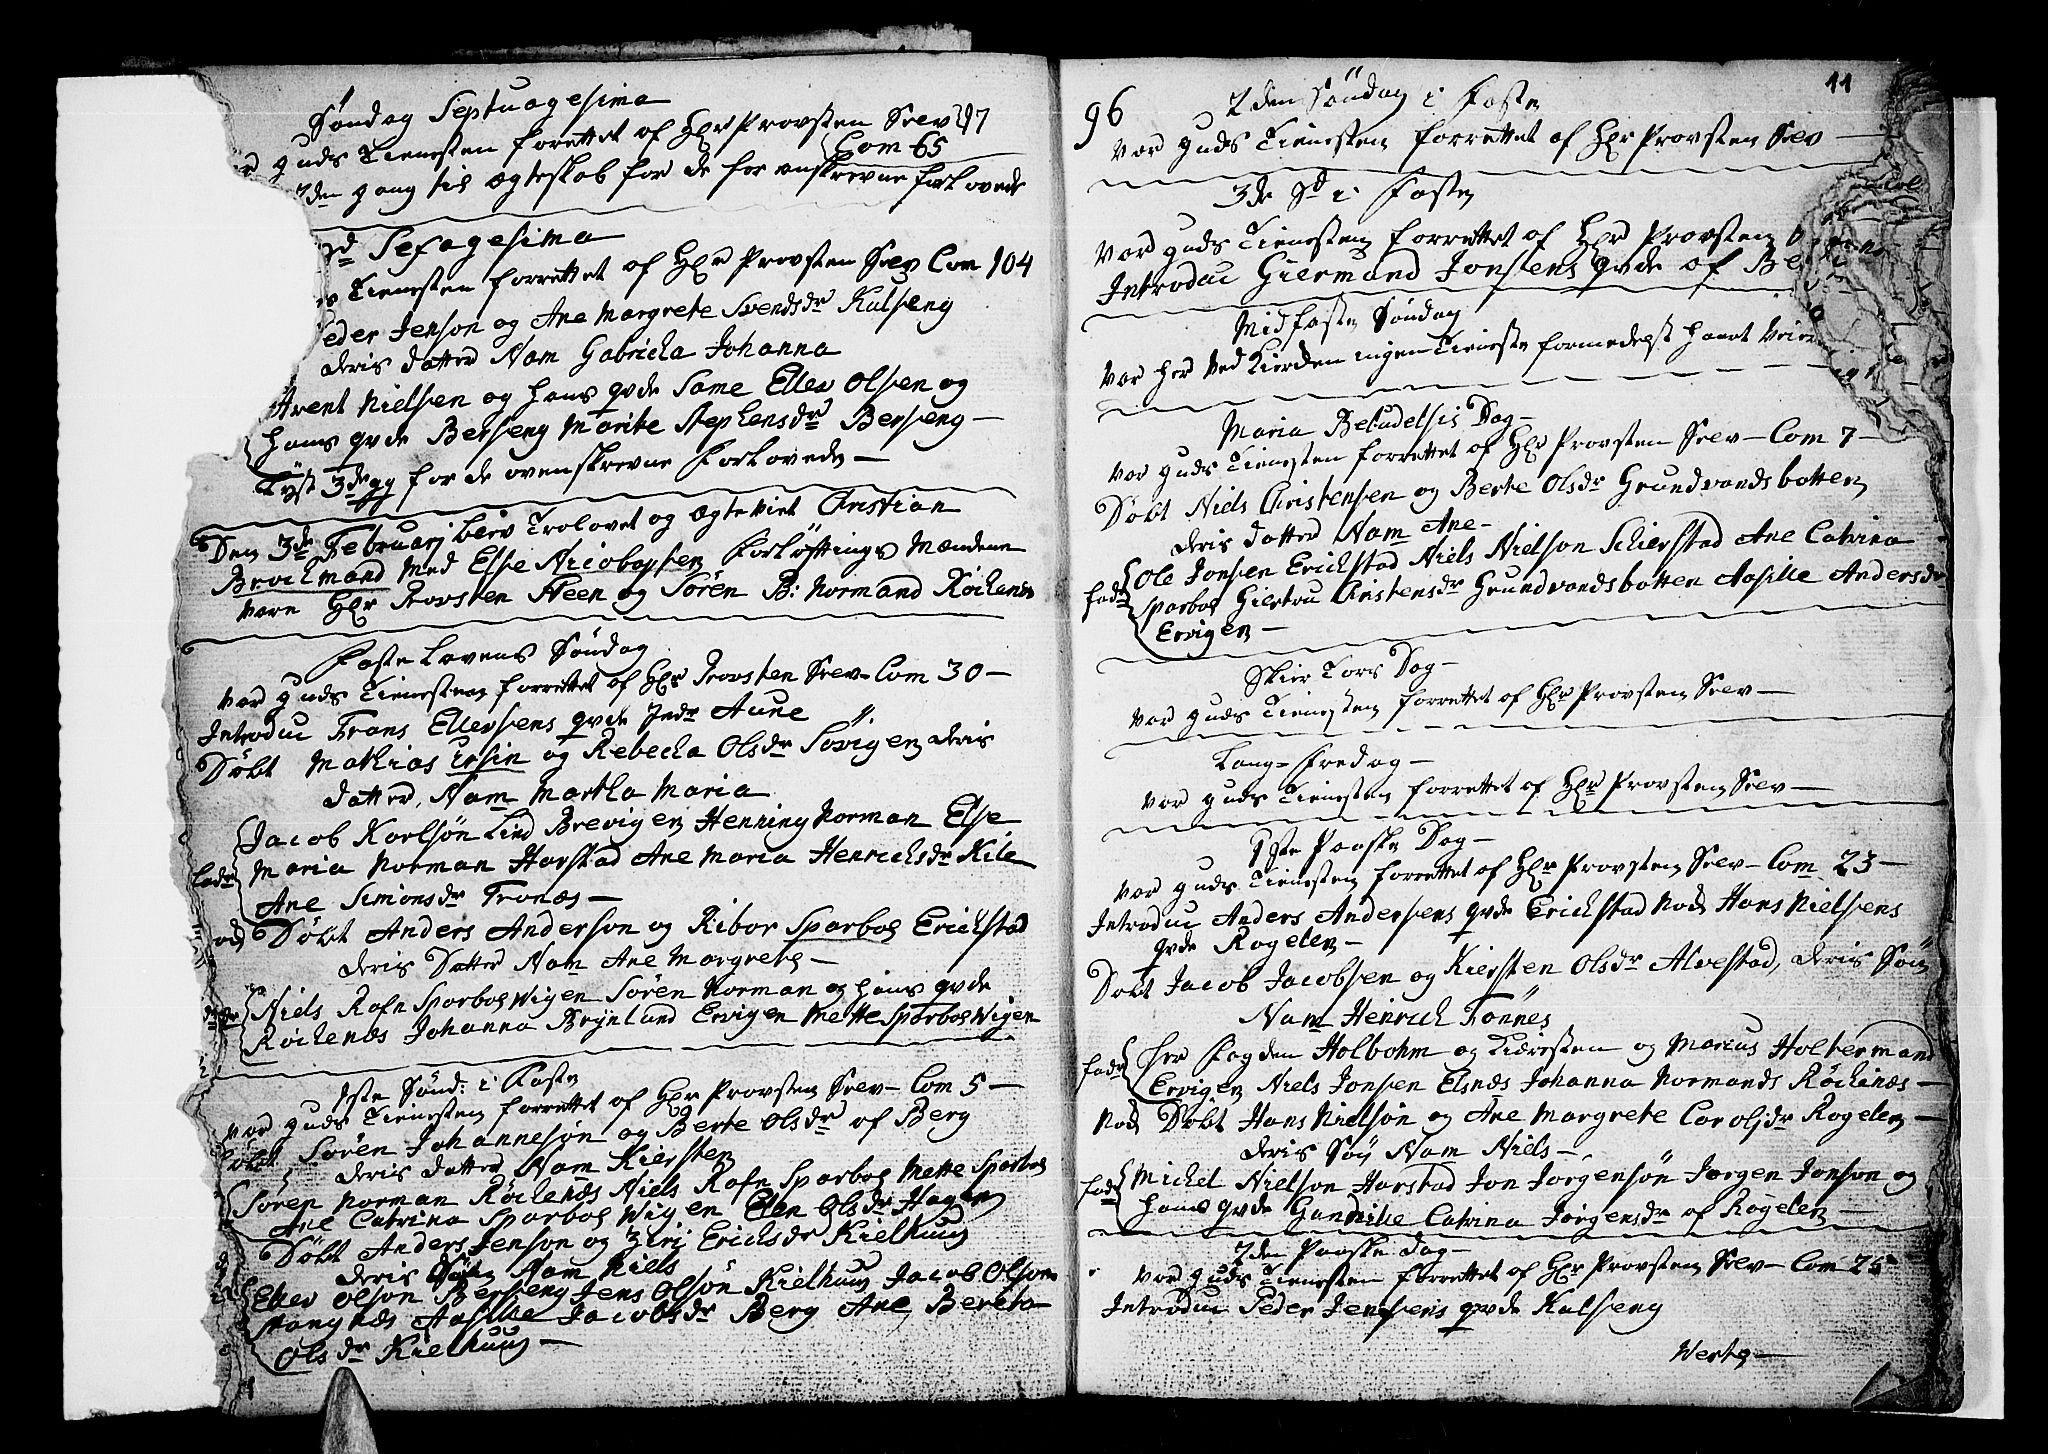 Søndag Septuagesima
guds Tienesten forrettet af Hr Provsten Selv 97
Com 65
2den gang til Ægteskab for de for anskrevne forlovede
Sd Sexagesima
Tienesten forrettet af Hr Provsten Selv Com 104
Peder Jenson og Ane Margrete Svendsdr Kalseng
deris datter Nam Gabricka Johanna
Arent Nielsen og hans qvde Same Eller Olsen og
hans qvde Berseng Marite Stephensdr Berseng
Lyst 3de gg for de ovenskrevne forlovede
Den 3de Februarj blev Trolovet og Ægteviet Christian
Brockmand Med Else Nicobaysen Forløftnings Mændene
Vare Hr Provsten Steen og Søren B: Normand Røckenes
Faste Lavens Søndag
Var guds Tienesten forrettet af Hr Provsten Selv Com 30
Introduc Frans Ellersens qvde Indr Aune
Døbt Mathias Ersin og Rebecka Olsdr Sørvigen deris
datter, Nam Martha Maria
Jacob Karlsøn Lind Brevigen Henning Norman Else
Maria Norman Harstad Ane Maria Henrichsdr Kile
fadr
Ane Simonsdr Tronæs
nok Døbt Anders Anderson og Ribor Sparboe Erickstad
deris Datter Nam Ane Margrete
Niels Rafn Sparboe Wigen Søren Norman og hans qvde
Røckenæs Johanna Brynlund Ervigen Mette Sparboe Wigen
1ste Sønd: i Faste
Var guds Tienesten forrettet af Hr Provsten Selv Com 5
Døbt Søren Johannesøn og Berte Olsdr af Berg
deris datter Nam Kiersten
Søren Norman Røckenæs Niels Rafn Sparboe Mette Sparboe
Ane Catrina Sparboe Wigen Elen Olsdr Hagen
Døbt Anders Jenson og Ziri Ericksdr Kielhuug
deris Søn Nam Niels
Eller Olson Berseng Jens Olsøn Kielhuug Jacob Olson
Stangnæs Aasille Jacobsdr Berg Ane Bereta
Olsdr Kielhuug
96
11
2den Søndag i Faste
Var guds Tienesten forrettet af Hr Provsten Selv
3de Sd i Faste
Var guds Tienesten forrettet af Hr Provsten
Introduc Giermand Jonsens qvde af
Midfaste Søndag
Var her Ved Kierken ingen Tieneste formedelst haart Veier
Maria Bebudelsis Dag
Var guds Tienesten forrettet af Hr Provsten Selv Com 7
Døbt Niels Christensen og Berte Olsdr Grundvandsbotten
deris datter Nam Ane
Ole Jonsen Erickstad Niels Nielson Schierstad Ane Catrina
fadr Sparboe Giertru Christensdr Grundvandsbotten Aasille Andersdr
Ervigen
Skier Tors Dag
Var guds Tienesten forrettet af Hr Provsten Selv
Lang-Fredag
Var guds Tienesten forrettet af Hr Provsten Selv
1ste Paaske Dag
Var guds Tienesten forrettet af Hr Provsten Selv Com 23
Introduc Anders Andersens qvde Erickstad nok Hans Nielsens
qvde Rogelen
Døbt Jacob Jacobsen og Kiersten Olsdr Alvestad, deris Søn
Nam Henrich Tønnes
fadr Her Fogden Holbohm og Kieresten og Marcus Holterman
Ervigen Niels Jonsen Elsnæs Johanna Normands Røckenæs
Nok Døbt Hans Nielsøn og Ane Margrete Carolsdr Rogelen
deris Søn Nam Niels
fadr Michel Nielson Harstad Jon Jørgensøn Jørgen Jonson og
hans qvde Gundille Catrina Jørgensdr af Rogelen
2den Paaske dag
Var guds Tienesten forrettet af Hr Provsten Selv Com 25
Introduc Peder Jensens qvde Kalseng
Werte